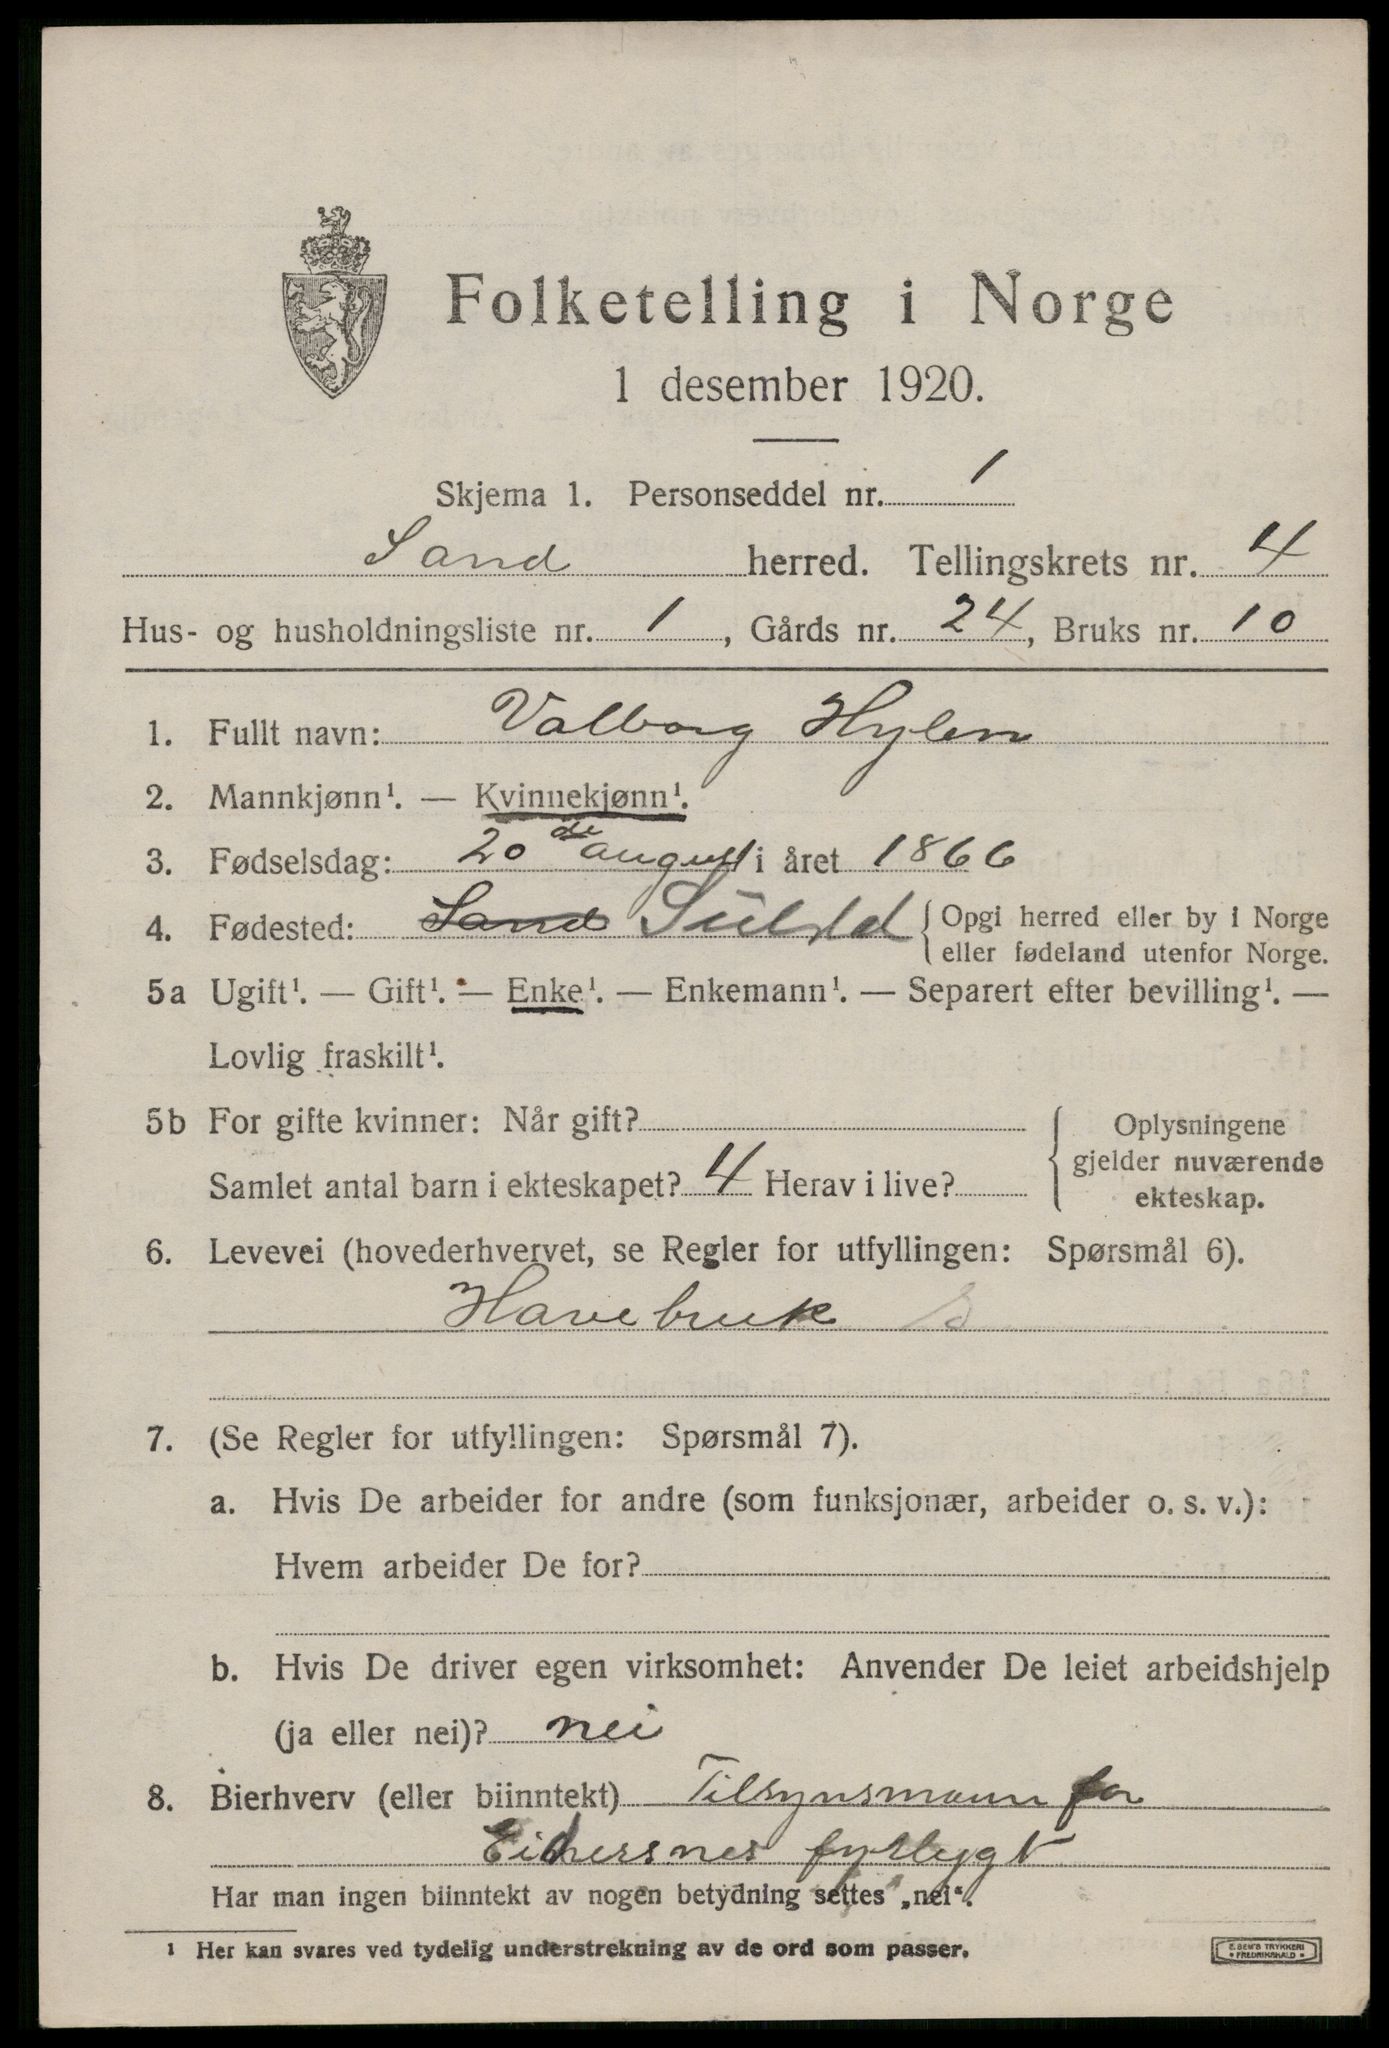 Folketelling i Norge
1 desember 1920.
Skjema 1. Personseddel nr. 1
Sand herred. Tellingskrets nr. 4
Hus- og husholdningsliste nr. 1, Gårds nr. 24, Bruks nr. 10
1. Fullt navn: Valborg Hylen
2. Mannkjønn¹. — Kvinnekjønn¹.
3. Fødselsdag: 20 de august i året 1866
4. Fødested: Sand Suldal { Opgi herred eller by i Norge
eller fødeland utenfor Norge.
5a Ugift¹. — Gift¹. — Enke¹. — Enkemann¹. — Separert efter bevilling¹. —
Lovlig fraskilt¹.
5b For gifte kvinner: Når gift?
Samlet antal barn i ekteskapet? 4 Herav i live?
{ Oplysningene
gjelder nuværende
ekteskap.
6. Levevei (hovederhvervet, se Regler for utfyllingen: Spørsmål 6).
Havebruk
7. (Se Regler for utfyllingen: Spørsmål 7).
a. Hvis De arbeider for andre (som funksjonær, arbeider o. s. v.):
Hvem arbeider De for?
b. Hvis De driver egen virksomhet: Anvender De leiet arbeidshjelp
(ja eller nei)? nei
8. Bierhverv (eller biinntekt) Tilsynsmann for
fyrlygt
Har man ingen biinntekt av nogen betydning settes „nei“.
¹ Her kan svares ved tydelig understrekning av de ord som passer.
E. SEM'S TRYKKERI
FREDRIKSHALD